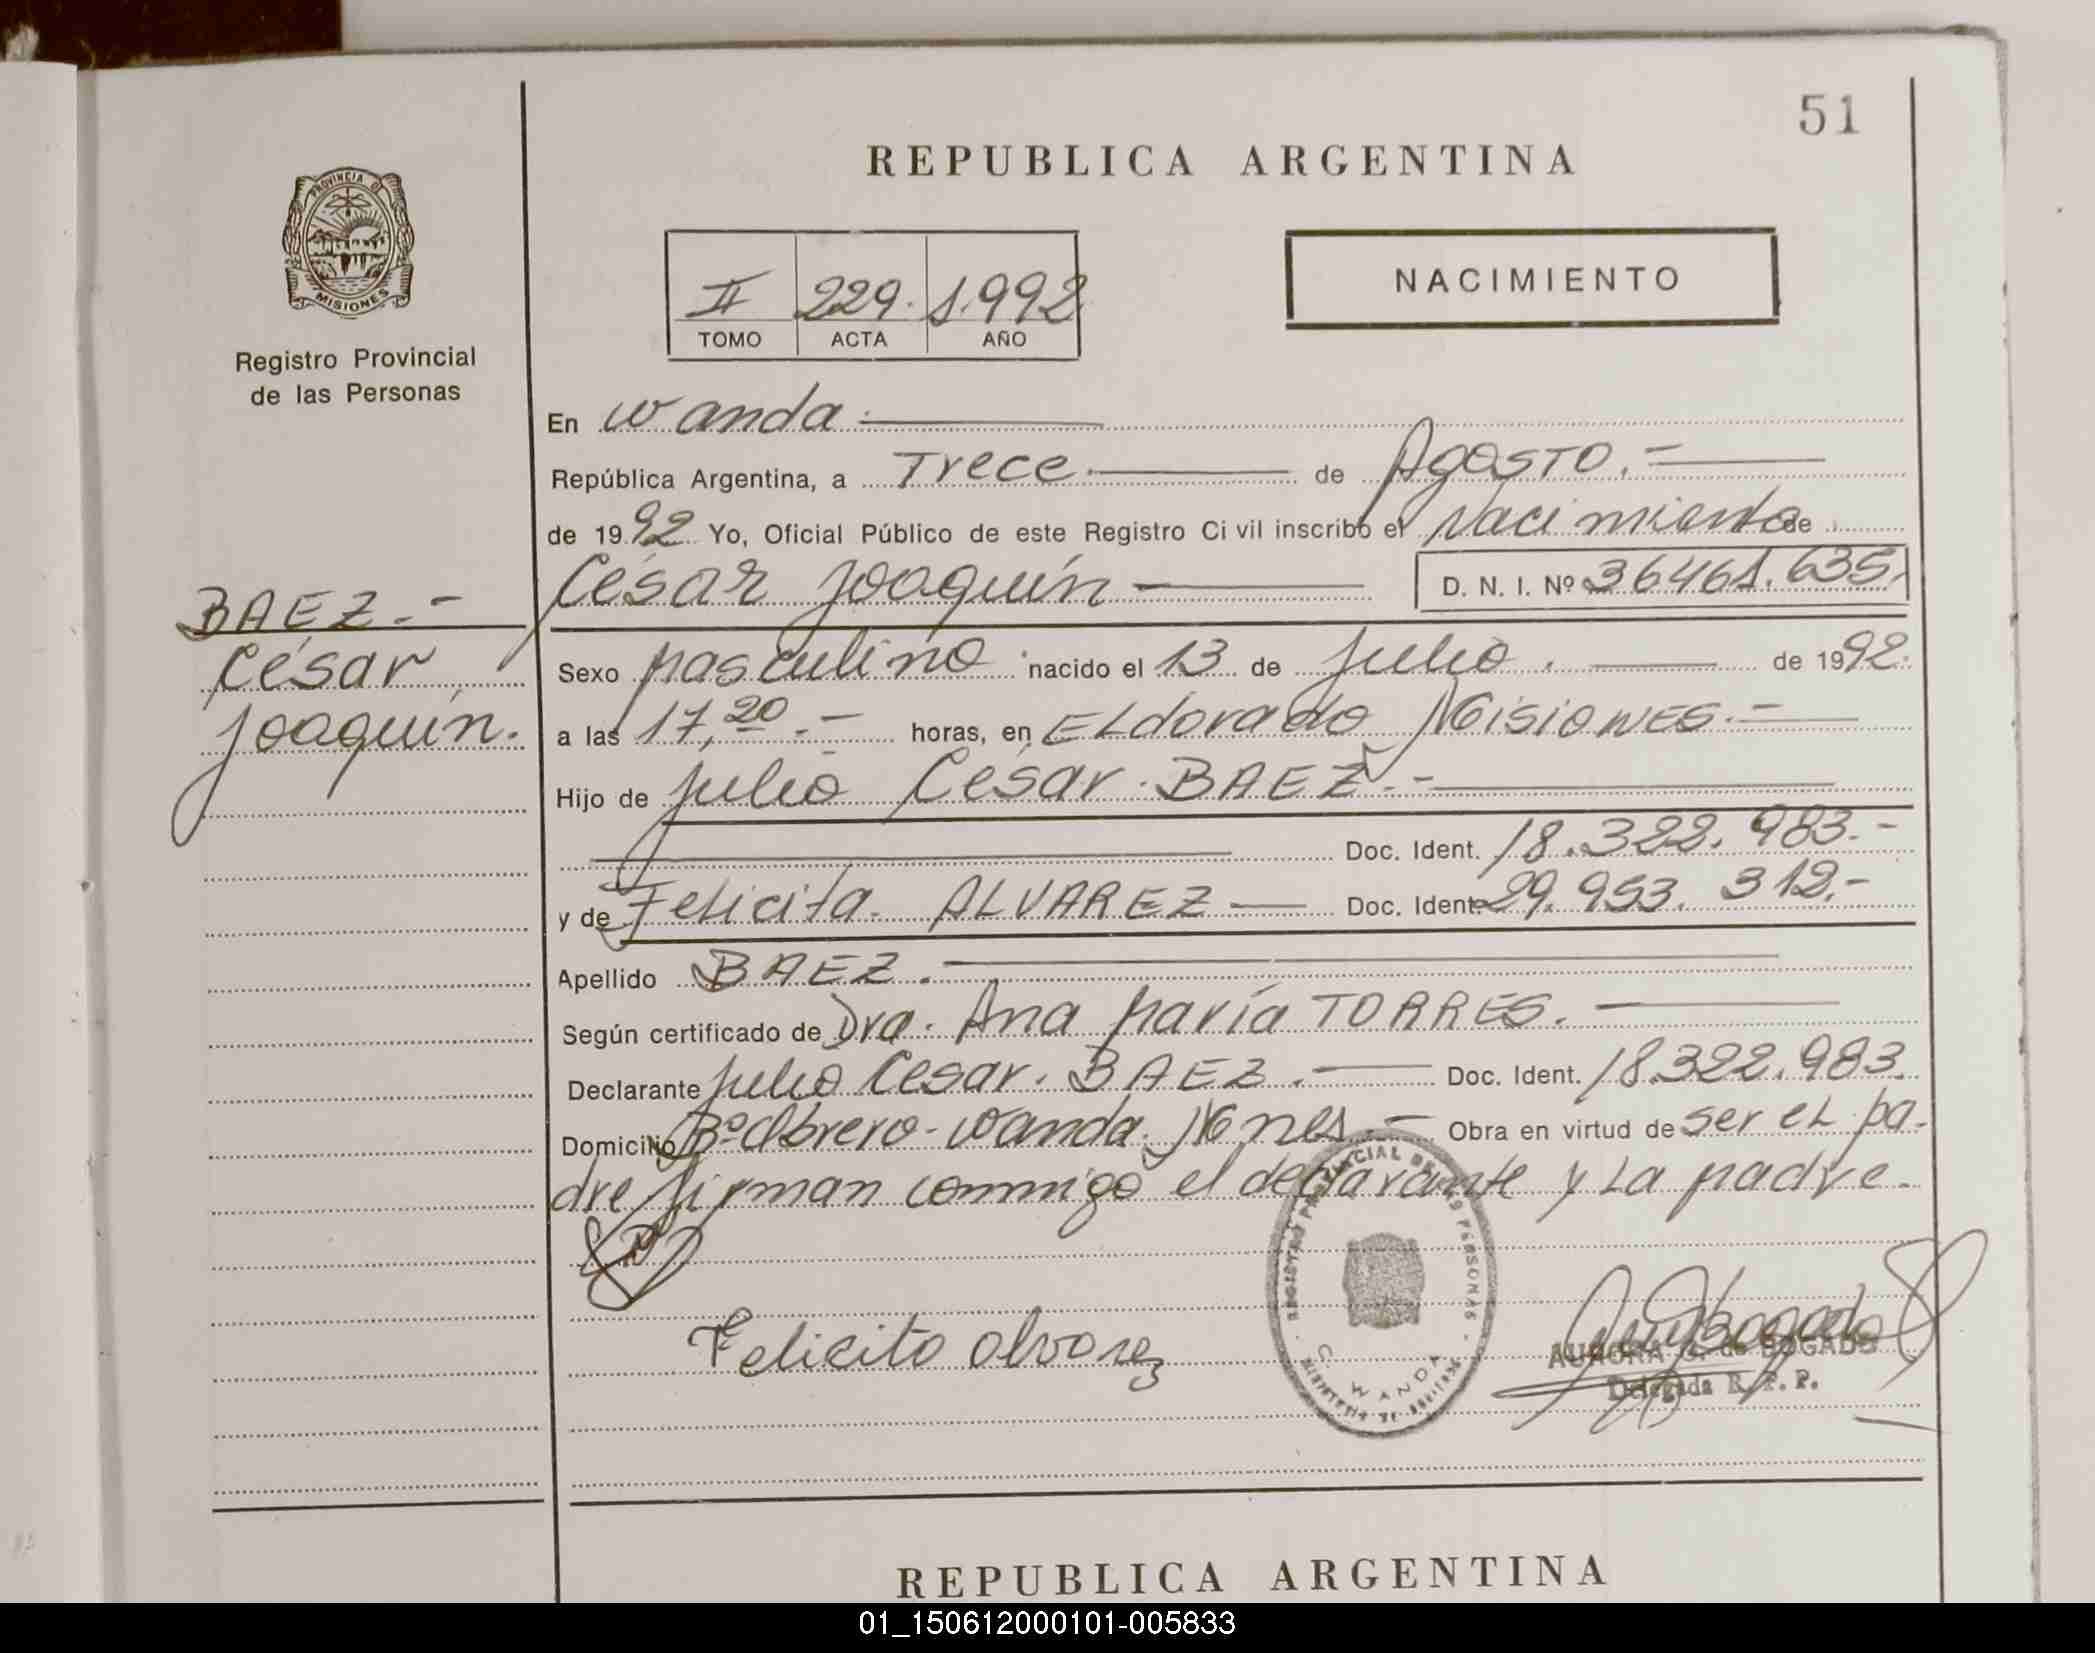 51
REPUBLICA ARGENTINA
PROVINCIA D
MISIONES
Registro Provincial
de las Personas
II 229. 1.992
TOMO ACTA AÑO
NACIMIENTO
En Wanda.
República Argentina, a Trece de Agosto.-
de 1992 Yo, Oficial Público de este Registro Ci vil inscribo el Nacimiento de
César Joaquín D. N. I. Nº 36461.635.
BAEZ.-
César
Joaquín.
Sexo Masculino nacido el 13 de Julio. de 1992.
a las 17,20.- horas, en ELdorado Misiones.-
Hijo de Julio César BAEZ.-
Doc. Ident. 18.322.983.-
y de Felicita ALVAREZ Doc. Ident. 29.953.312.-
Apellido BAEZ.
Según certificado de Dra. Ana María TORRES.
Declarante Julio Cesar BAEZ. Doc. Ident. 18.322.983.
Domicilio Bº Obrero-Wanda. Mnes.- Obra en virtud de ser el pa-
dre firman conmigo el declarante y La madre.
REGISTRO PROVINCIAL DE LAS PERSONAS
WANDA
Felicita Alvarez
AURORA G. de BOGADO
Delegada R. P. P.
REPUBLICA ARGENTINA
01_150612000101-005833